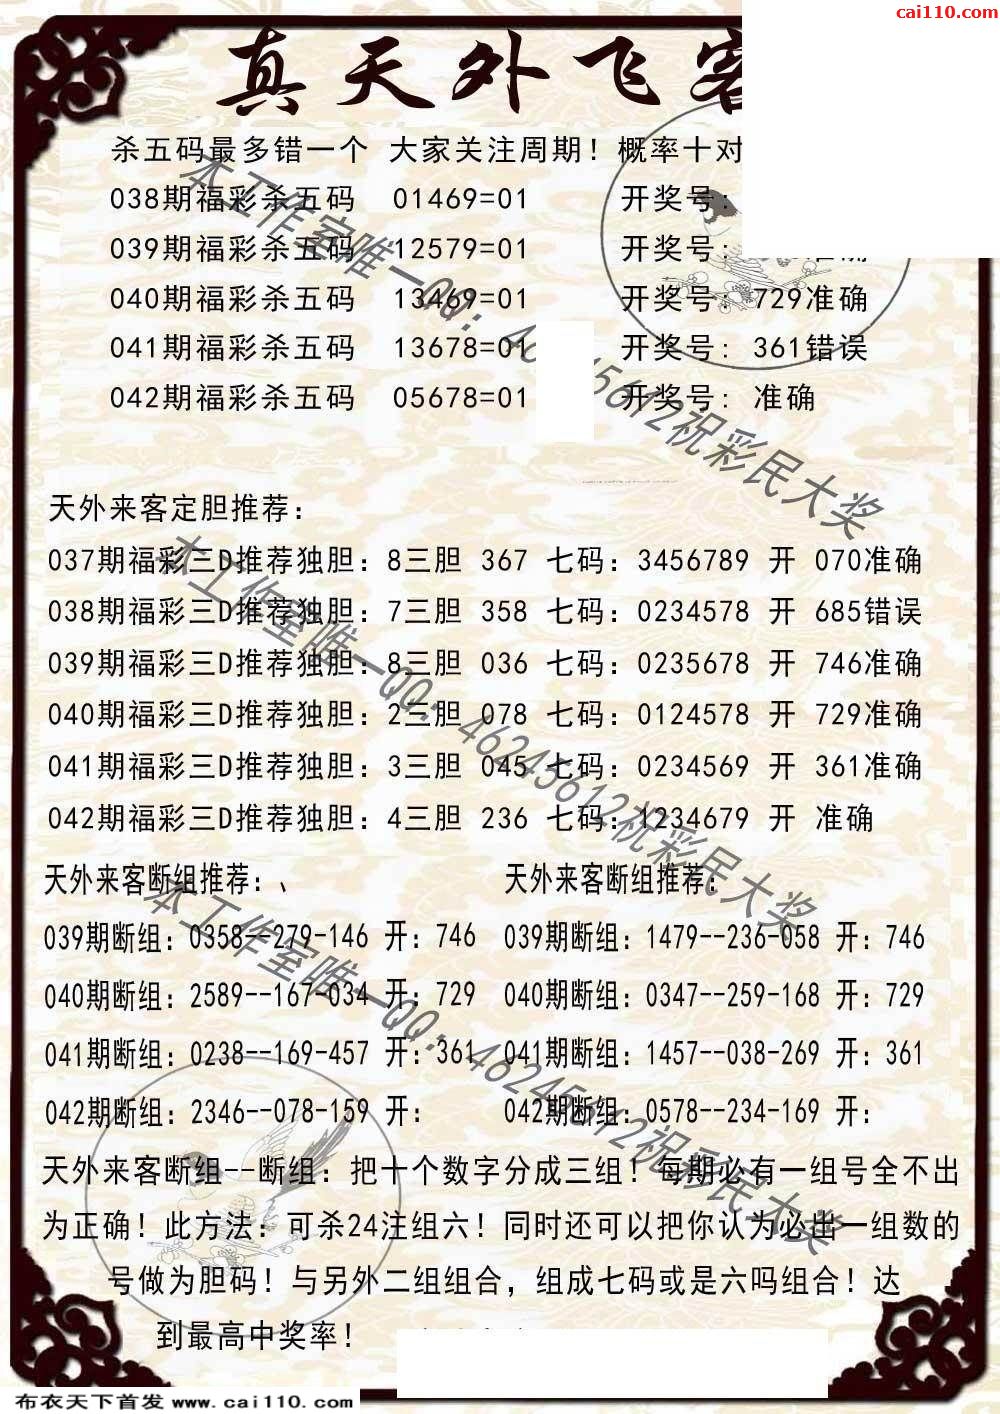 cai110.com
真天外飞客
杀五码最多错一个 大家关注周期！概率十对
038期福彩杀五码 01469=01 开奖号:
039期福彩杀五码 12579=01 开奖号: 准确
040期福彩杀五码 13469=01 开奖号: 729准确
041期福彩杀五码 13678=01 开奖号: 361错误
042期福彩杀五码 05678=01 开奖号: 准确
天外来客定胆推荐:
037期福彩三D推荐独胆: 8三胆 367 七码: 3456789 开 070准确
038期福彩三D推荐独胆: 7三胆 358 七码: 0234578 开 685错误
039期福彩三D推荐独胆: 8三胆 036 七码: 0235678 开 746准确
040期福彩三D推荐独胆: 2三胆 078 七码: 0124578 开 729准确
041期福彩三D推荐独胆: 3三胆 045 七码: 0234569 开 361准确
042期福彩三D推荐独胆: 4三胆 236 七码: 1234679 开 准确
天外来客断组推荐:、 天外来客断组推荐:
039期断组: 0358--279-146 开: 746 039期断组: 1479--236-058 开: 746
040期断组: 2589--167-034 开: 729 040期断组: 0347--259-168 开: 729
041期断组: 0238--169-457 开: 361 041期断组: 1457--038-269 开: 361
042期断组: 2346--078-159 开: 042期断组: 0578--234-169 开:
天外来客断组--断组: 把十个数字分成三组！每期必有一组号全不出
为正确！此方法: 可杀24注组六！同时还可以把你认为必出一组数的
号做为胆码！与另外二组组合，组成七码或是六吗组合！达
到最高中奖率！
本工作室唯一QQ: 46245612祝彩民大奖
本工作室唯一QQ: 46245612祝彩民大奖
本工作室唯一QQ: 46245612祝彩民大奖
布衣天下首发 www.cai110.com